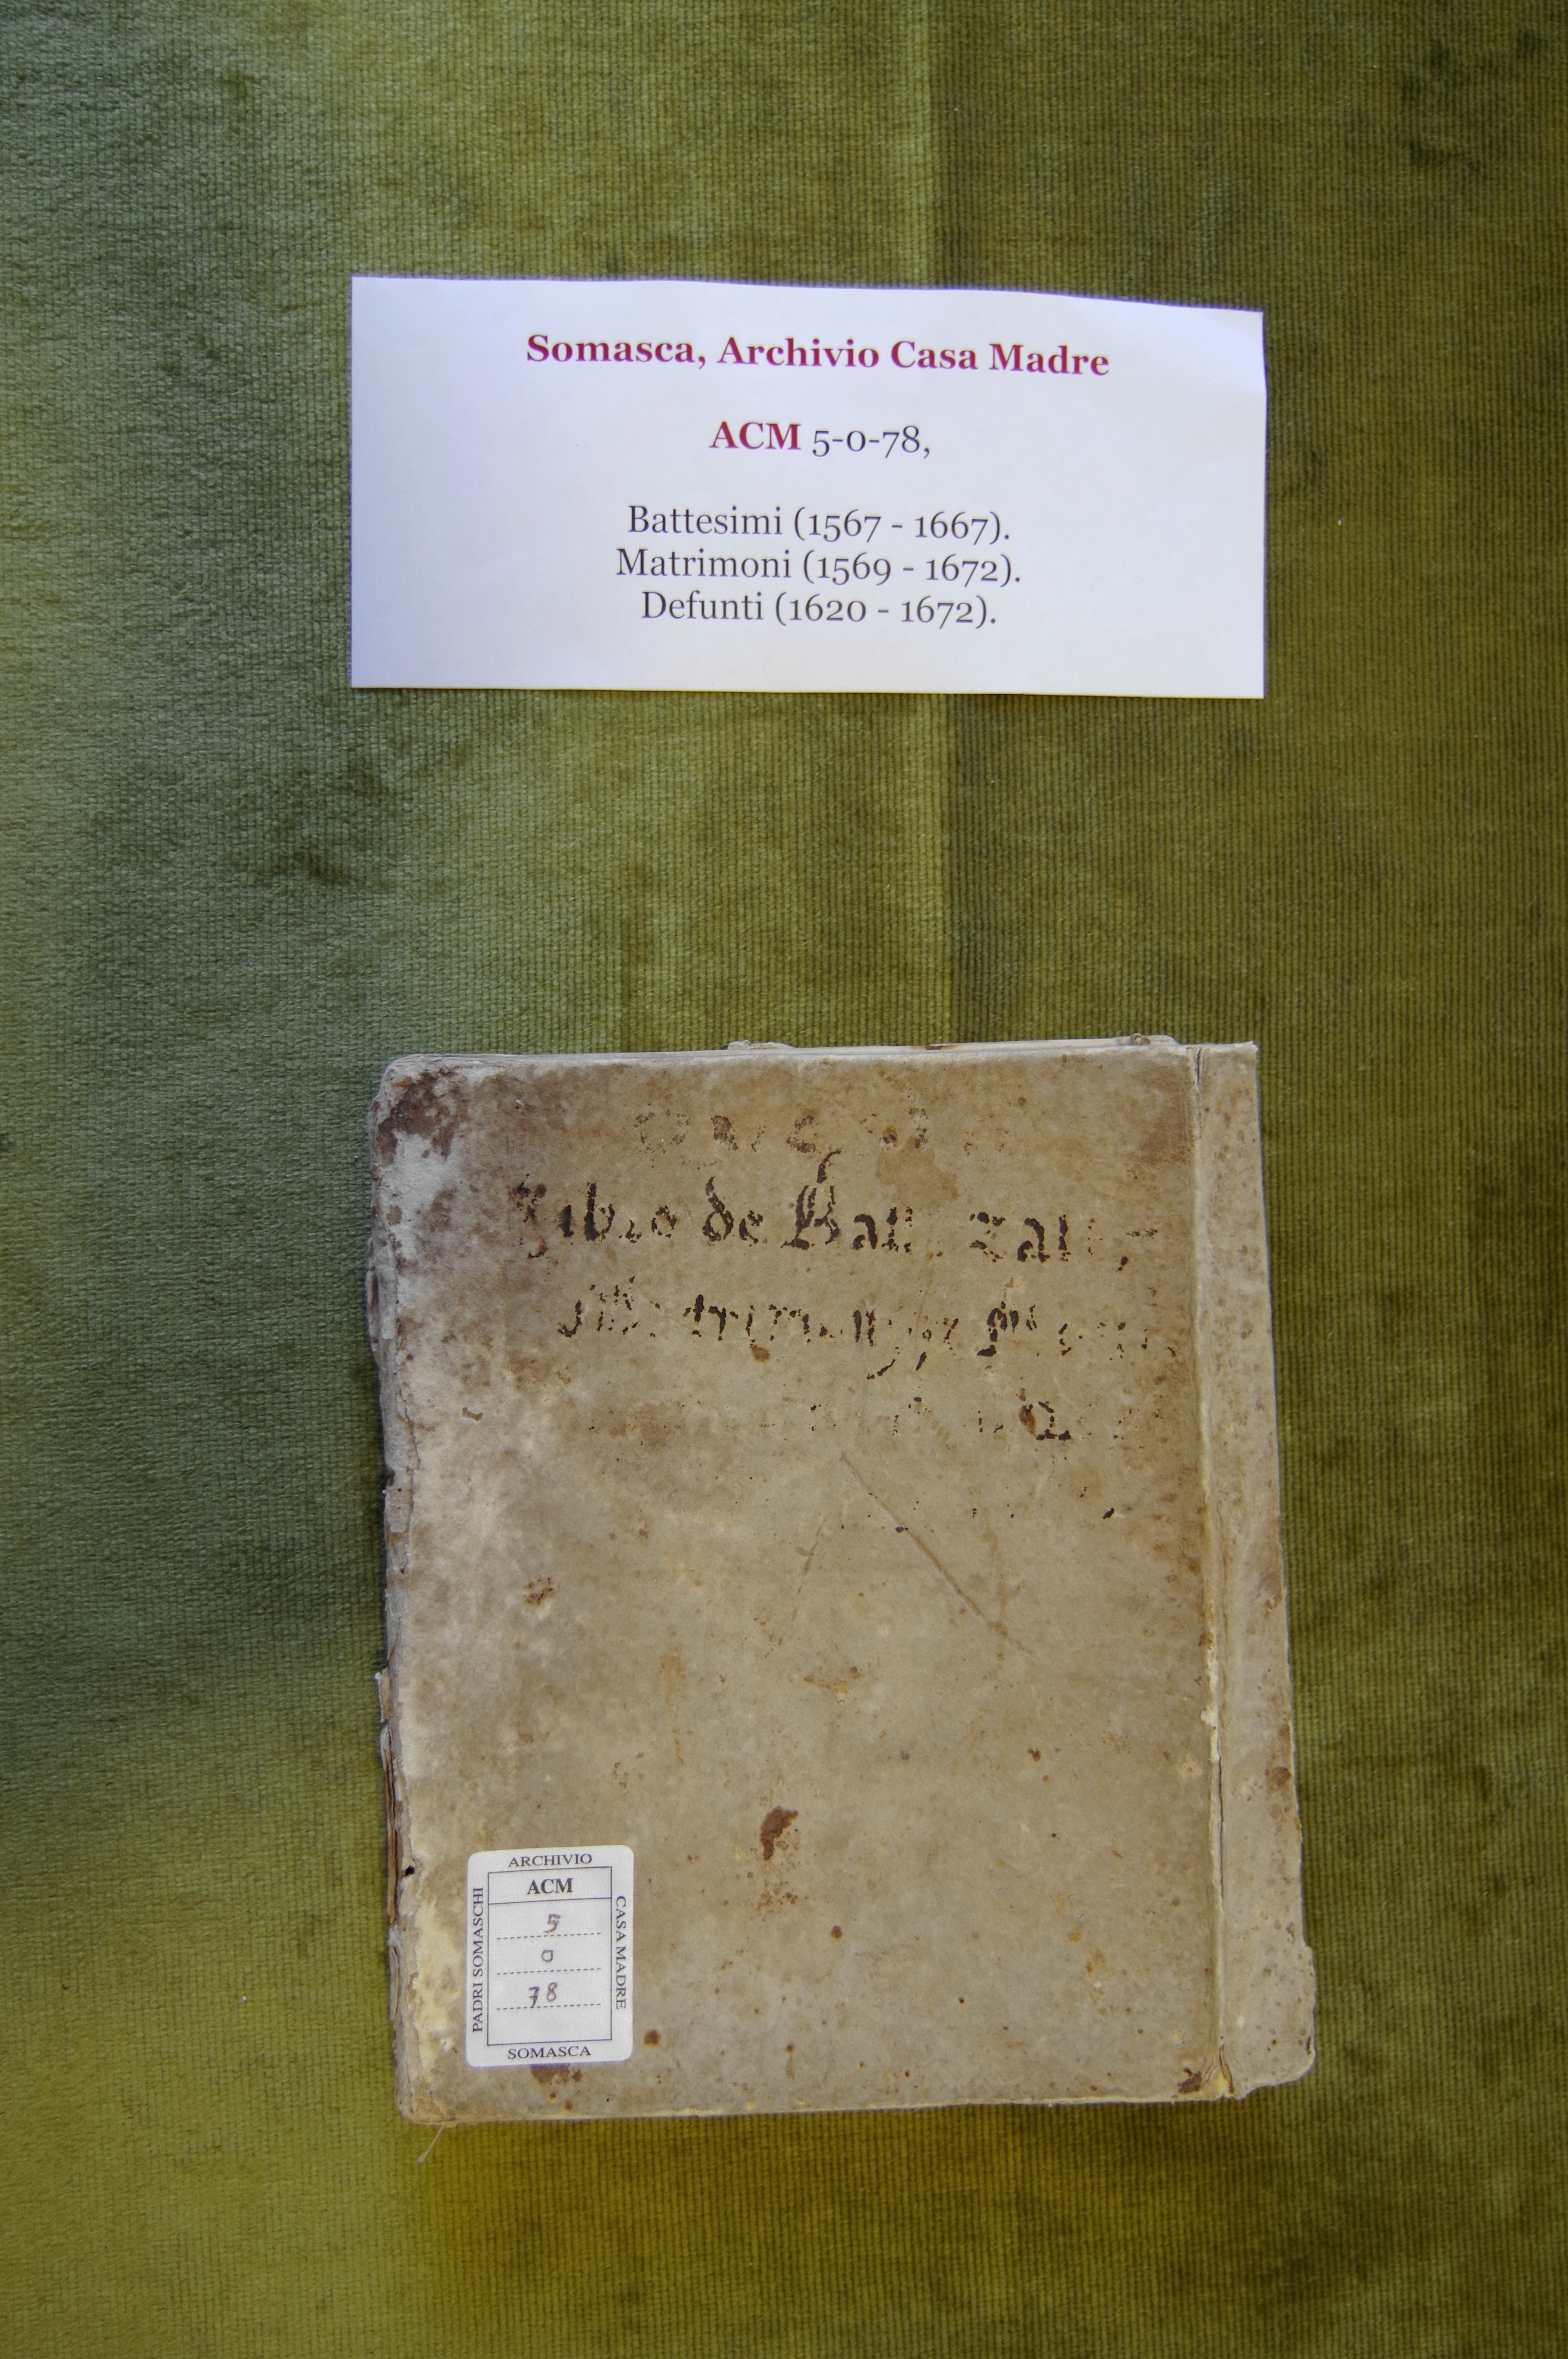 Somasca, Archivio Casa Madre
ACM 5-0-78,
Battesimi (1567 - 1667).
Matrimoni (1569 - 1672).
Defunti (1620 - 1672).
Libro de
ARCHIVIO
ACM
5
0
78
PADRI SOMASCHI
CASA MADRE
SOMASCA